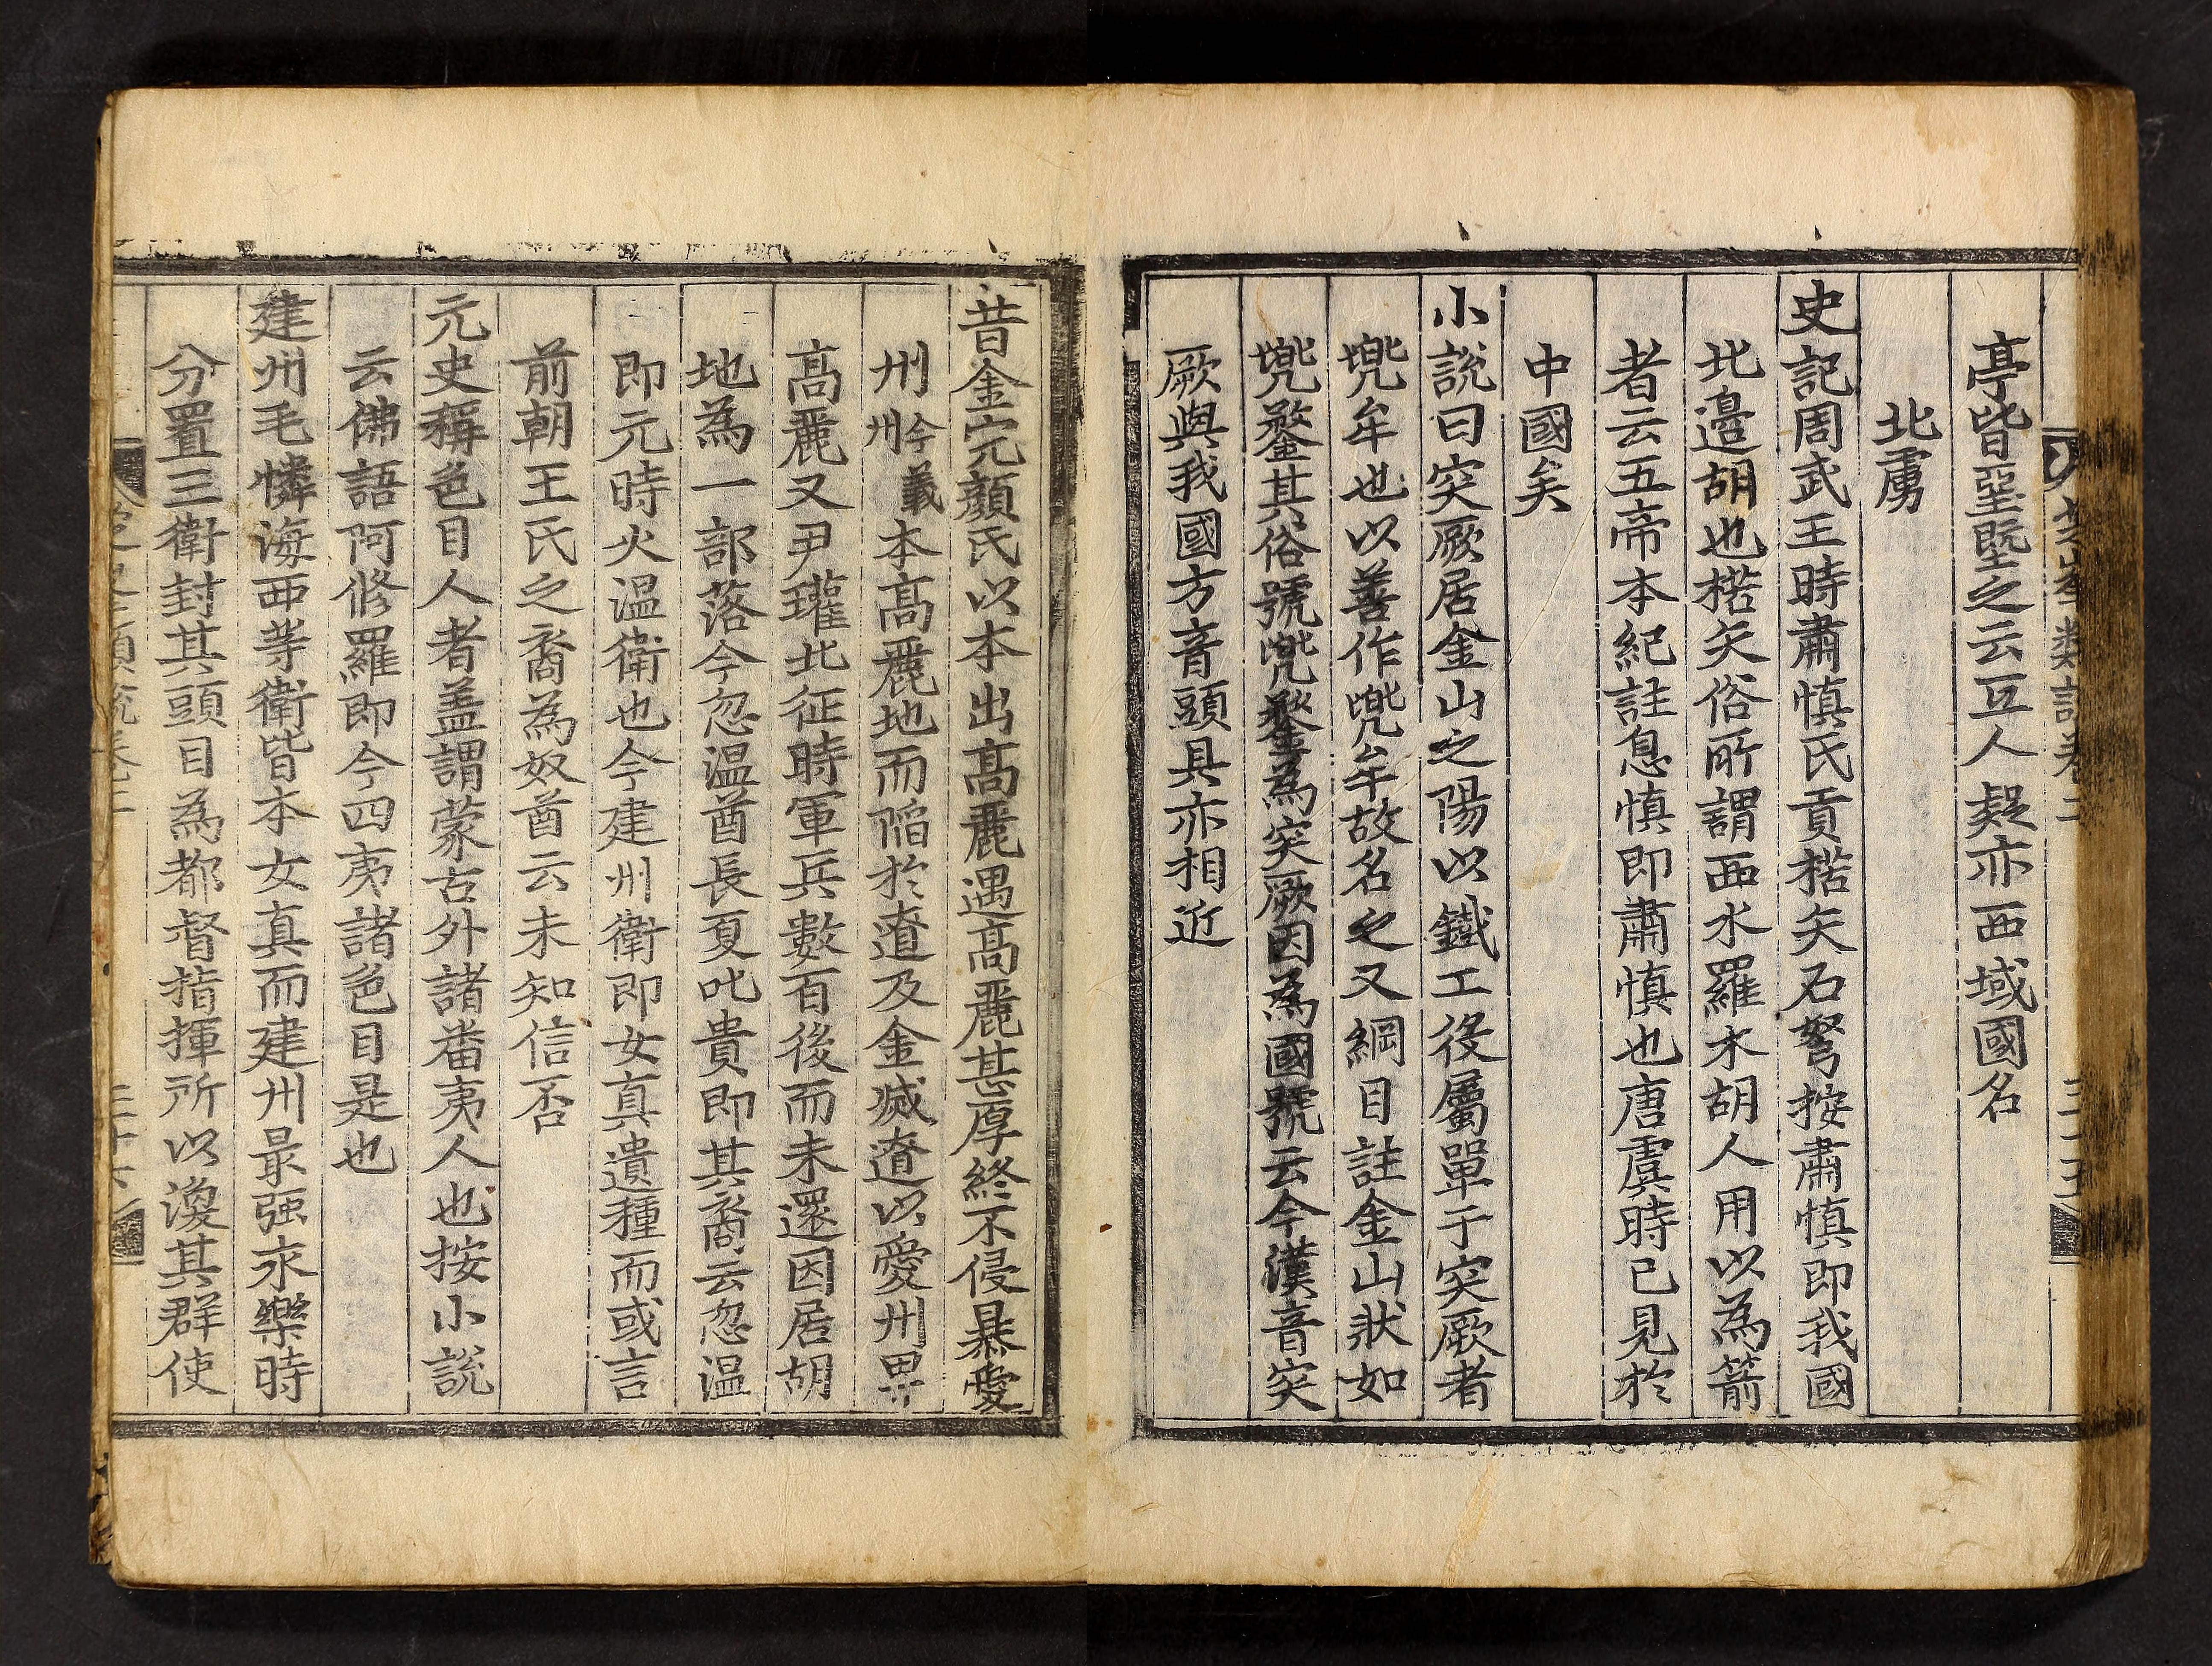 芝峯類說卷二
三十五
亭皆堊塈之云亙人疑亦西域國名
北虜
史記周武王時肅慎氏貢楛矢石弩按肅慎即我國
北邉胡也楛矢俗所謂西水羅木胡人用以為箭
者云五帝本紀註息慎即肅慎也唐虞時已見於
中國矣
小說曰突厥居金山之陽以鐵工役屬單于突厥者
兠牟也以善作兠牟故名之又綱目註金山狀如
兠鍪其俗號兠鍪為突厥因為國號云今漢音突
厥與我國方音頭具亦相近
昔金完顔氏以本出高麗遇高麗甚厚終不侵暴愛
州今義州本高麗地而陷於遼及金滅遼以愛州畀
高麗又尹瓘北征時軍兵數百後而未還因居胡
地為一部落今忽温酋長夏叱貴即其裔云忽温
即元時火温衛也今建州衛即女真遺種而或言
前朝王氏之裔為奴酋云未知信否
元史稱色目人者盖謂蒙古外諸番夷人也按小說
云佛語阿修羅即今四夷諸色目是也
建州毛憐海西等衛皆本女真而建州最强永樂時
分置三衛封其頭目為都督指揮所以渙其群使
三十六